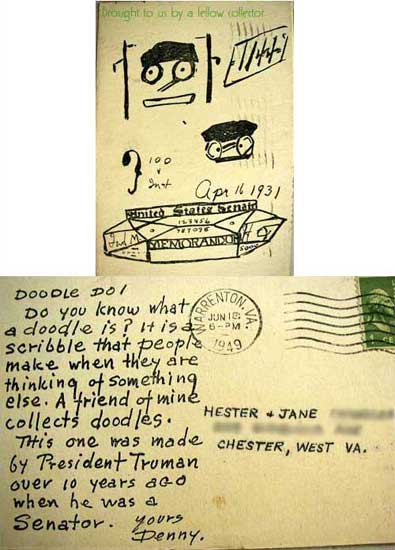 Brought to us by a fellow collector
1144
100
Apr 16 1931
United States Senate
123456
MEMORANDUM
DOODLE DO!
DO you know what
a doodle is? It is a
scribble that people
make when they are
thinking of something
else. A friend of mine
collects doodles.
This one was made
by President Truman
over 10 years ago
when he was a
Senator. yours
Denny.
WARRENTON, VA.
JUN 16
6-PM
1949
HESTER & JANE
CHESTER, WEST VA.